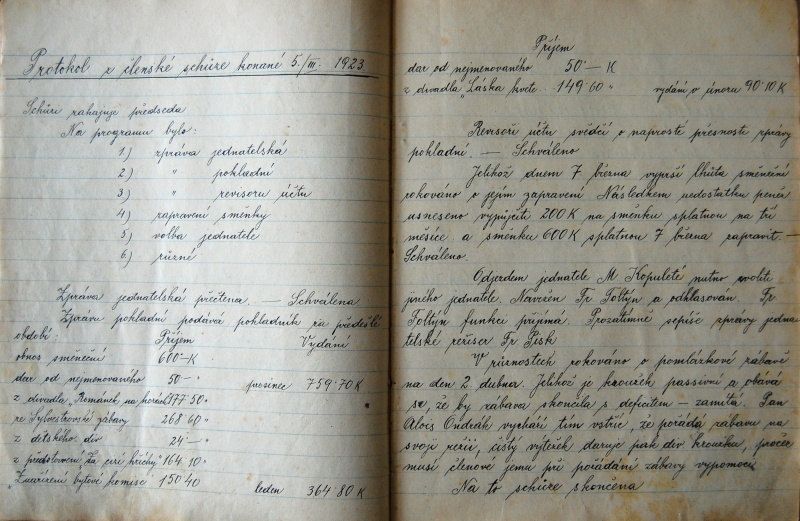 Protokol z členské schůze konané 5./III. 1923
Schůzi zahajuje předseda
Na programu bylo:
1.) zpráva jednatelská
2.) " pokladní
3.) " revisorů účtu
4.) zapravení směnky
5.) volba jednatele
6.) různé
Zpráva jednatelská přečtena. — Schválena
Zprávu pokladní podává pokladník za předešlé
období: Příjem Vydání
obnos směnečný 600 — K
dar od nejmenovaného 50 — " prosinec 759·70 K
z divadla „Románek na horách" 177·50 "
ze Sylvestrovské zábavy 268·60 "
z dětského div 24 — "
z představení „Za cizí hříchy" 164·10 "
bytové komise 150·40
leden 364·80 K
Příjem
dar od nejmenovaného 50 — K
z divadla „Láska kvete 149·60 " vydání v únoru 90·10 K
Revisoři účtu svědčí o naprosté přesnosti zprávy
pokladní. — Schváleno
Jelikož dnem 7 března vyprší lhůta směneční
rokováno o jejím zapravení. Následkem nedostatku peněz
usneseno vypůjčiti 200 K na směnku splatnou na tři
měsíce a směnku 600 K splatnou 7 března zapravit. —
Schváleno.
Odjezdem jednatele M Kopuleté nutno zvoliti
jiného jednatele. Navržen Fr Foltýn a odhlasován. Fr
Foltýn funkci přijímá. Prozatímně sepíše zprávy jedna-
telské režiser Fr Písk
V různostech rokováno o pomlázkové zábavě
na den 2 dubna. Jelikož je kroužek passivní a obává
se, že by zábava skončila s deficitem — zamítá. Pan
Alois Ondrák vychází tím vstříc, že pořádá zábavu na
svoji režii, čistý výtěžek daruje pak div kroužku, pročež
musí členové jemu při pořádání zábavy vypomoci.
Na to schůze skončena